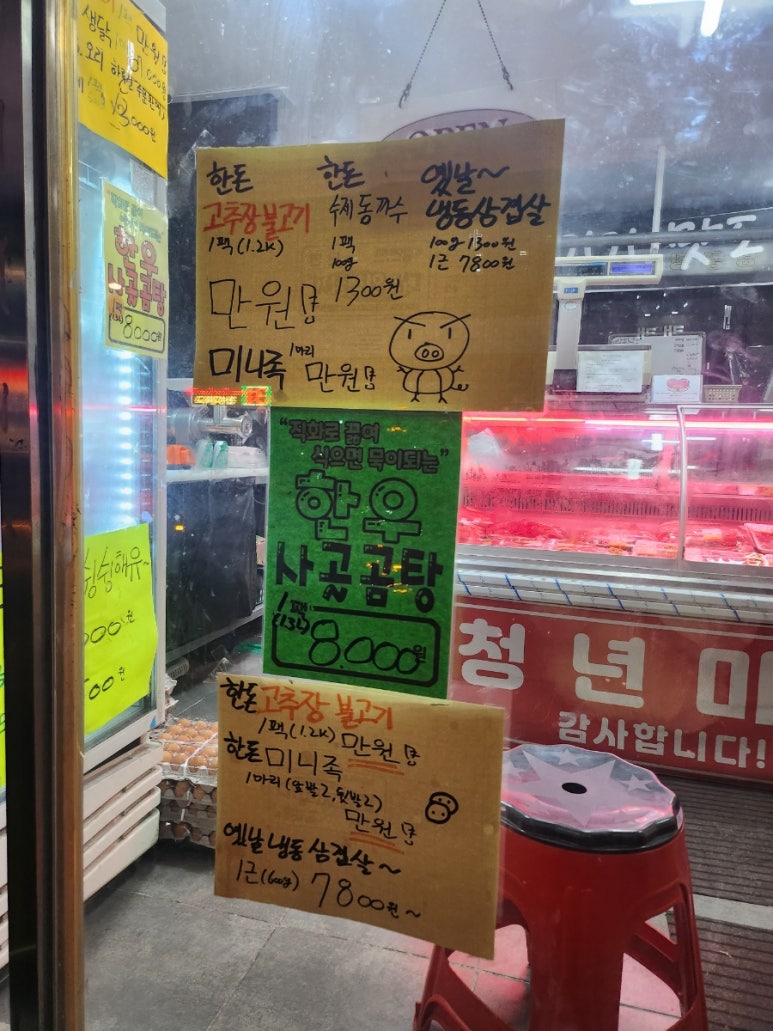 생닭 만원
오리
13,000원
한우
사골곰탕
(1.3L)
8000원
OPEN
한돈
고추장불고기
1팩(1.2K)
만원
한돈
수제돈까스
1팩
100g
1300원
옛날~
냉동삼겹살
100g 1300원
1근 7800원
미니족 1마리 만원
"직화로 끓여
식으면 묵이되는"
한우
사골곰탕
1팩
(1.3L)
8.000원
한돈고추장 불고기
1팩(1.2K) 만원
한돈미니족
1마리(앞발2,뒷발2)
만원
옛날냉동삼겹살~
1근(600g) 7800원~
청년
감사합니다!